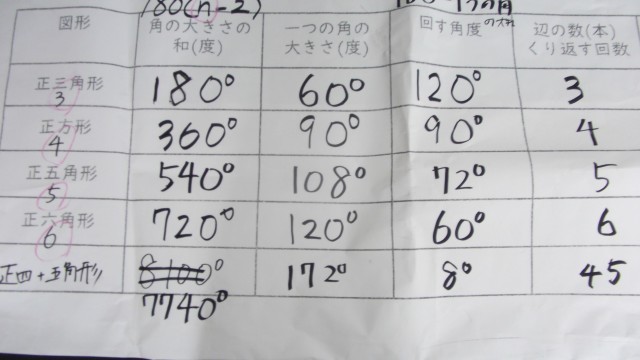 180(n-2)
図形 角の大きさの和(度) 一つの角の大きさ(度) 回す角度の大きさ 辺の数(本)くり返す回数
正三角形 3 180° 60° 120° 3
正方形 4 360° 90° 90° 4
正五角形 5 540° 108° 72° 5
正六角形 6 720° 120° 60° 6
正四十五角形 8100° 172° 8° 45
7740°